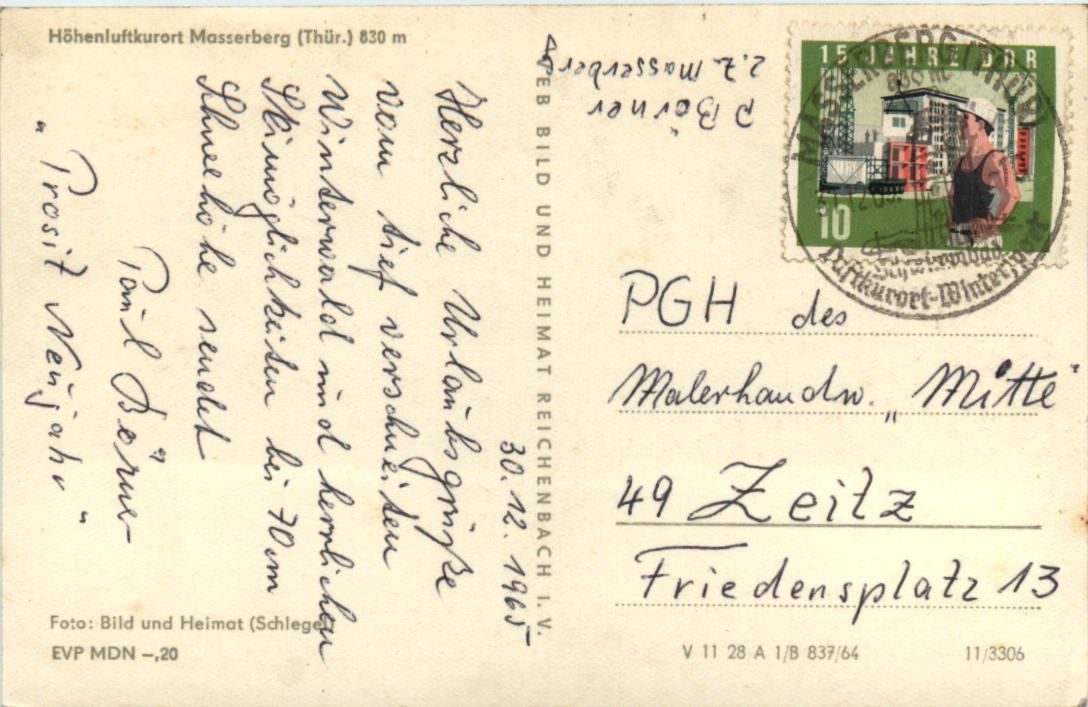 Höhenluftkurort Masserberg (Thür.) 830 m
30.12.1965
Herzliche Urlaubsgrüße
vom tief verschneiten
Winterwald und herrlichen
Skimöglichkeiten bei 70 cm
Schneehöhe sendet
Paul Börner
"Prosit Neujahr"
Foto: Bild und Heimat (Schlegel)
EVP MDN –,20
VEB BILD UND HEIMAT REICHENBACH I. V.
P Börner
z. Z. Masserberg
15 JAHRE DDR
10
MASSERBERG (THÜR)
830 m
Luftkurort-Wintersport
PGH des
Malerhandw. „Mitte"
49 Zeitz
Friedensplatz 13
V 11 28 A 1/B 837/64
11/3306